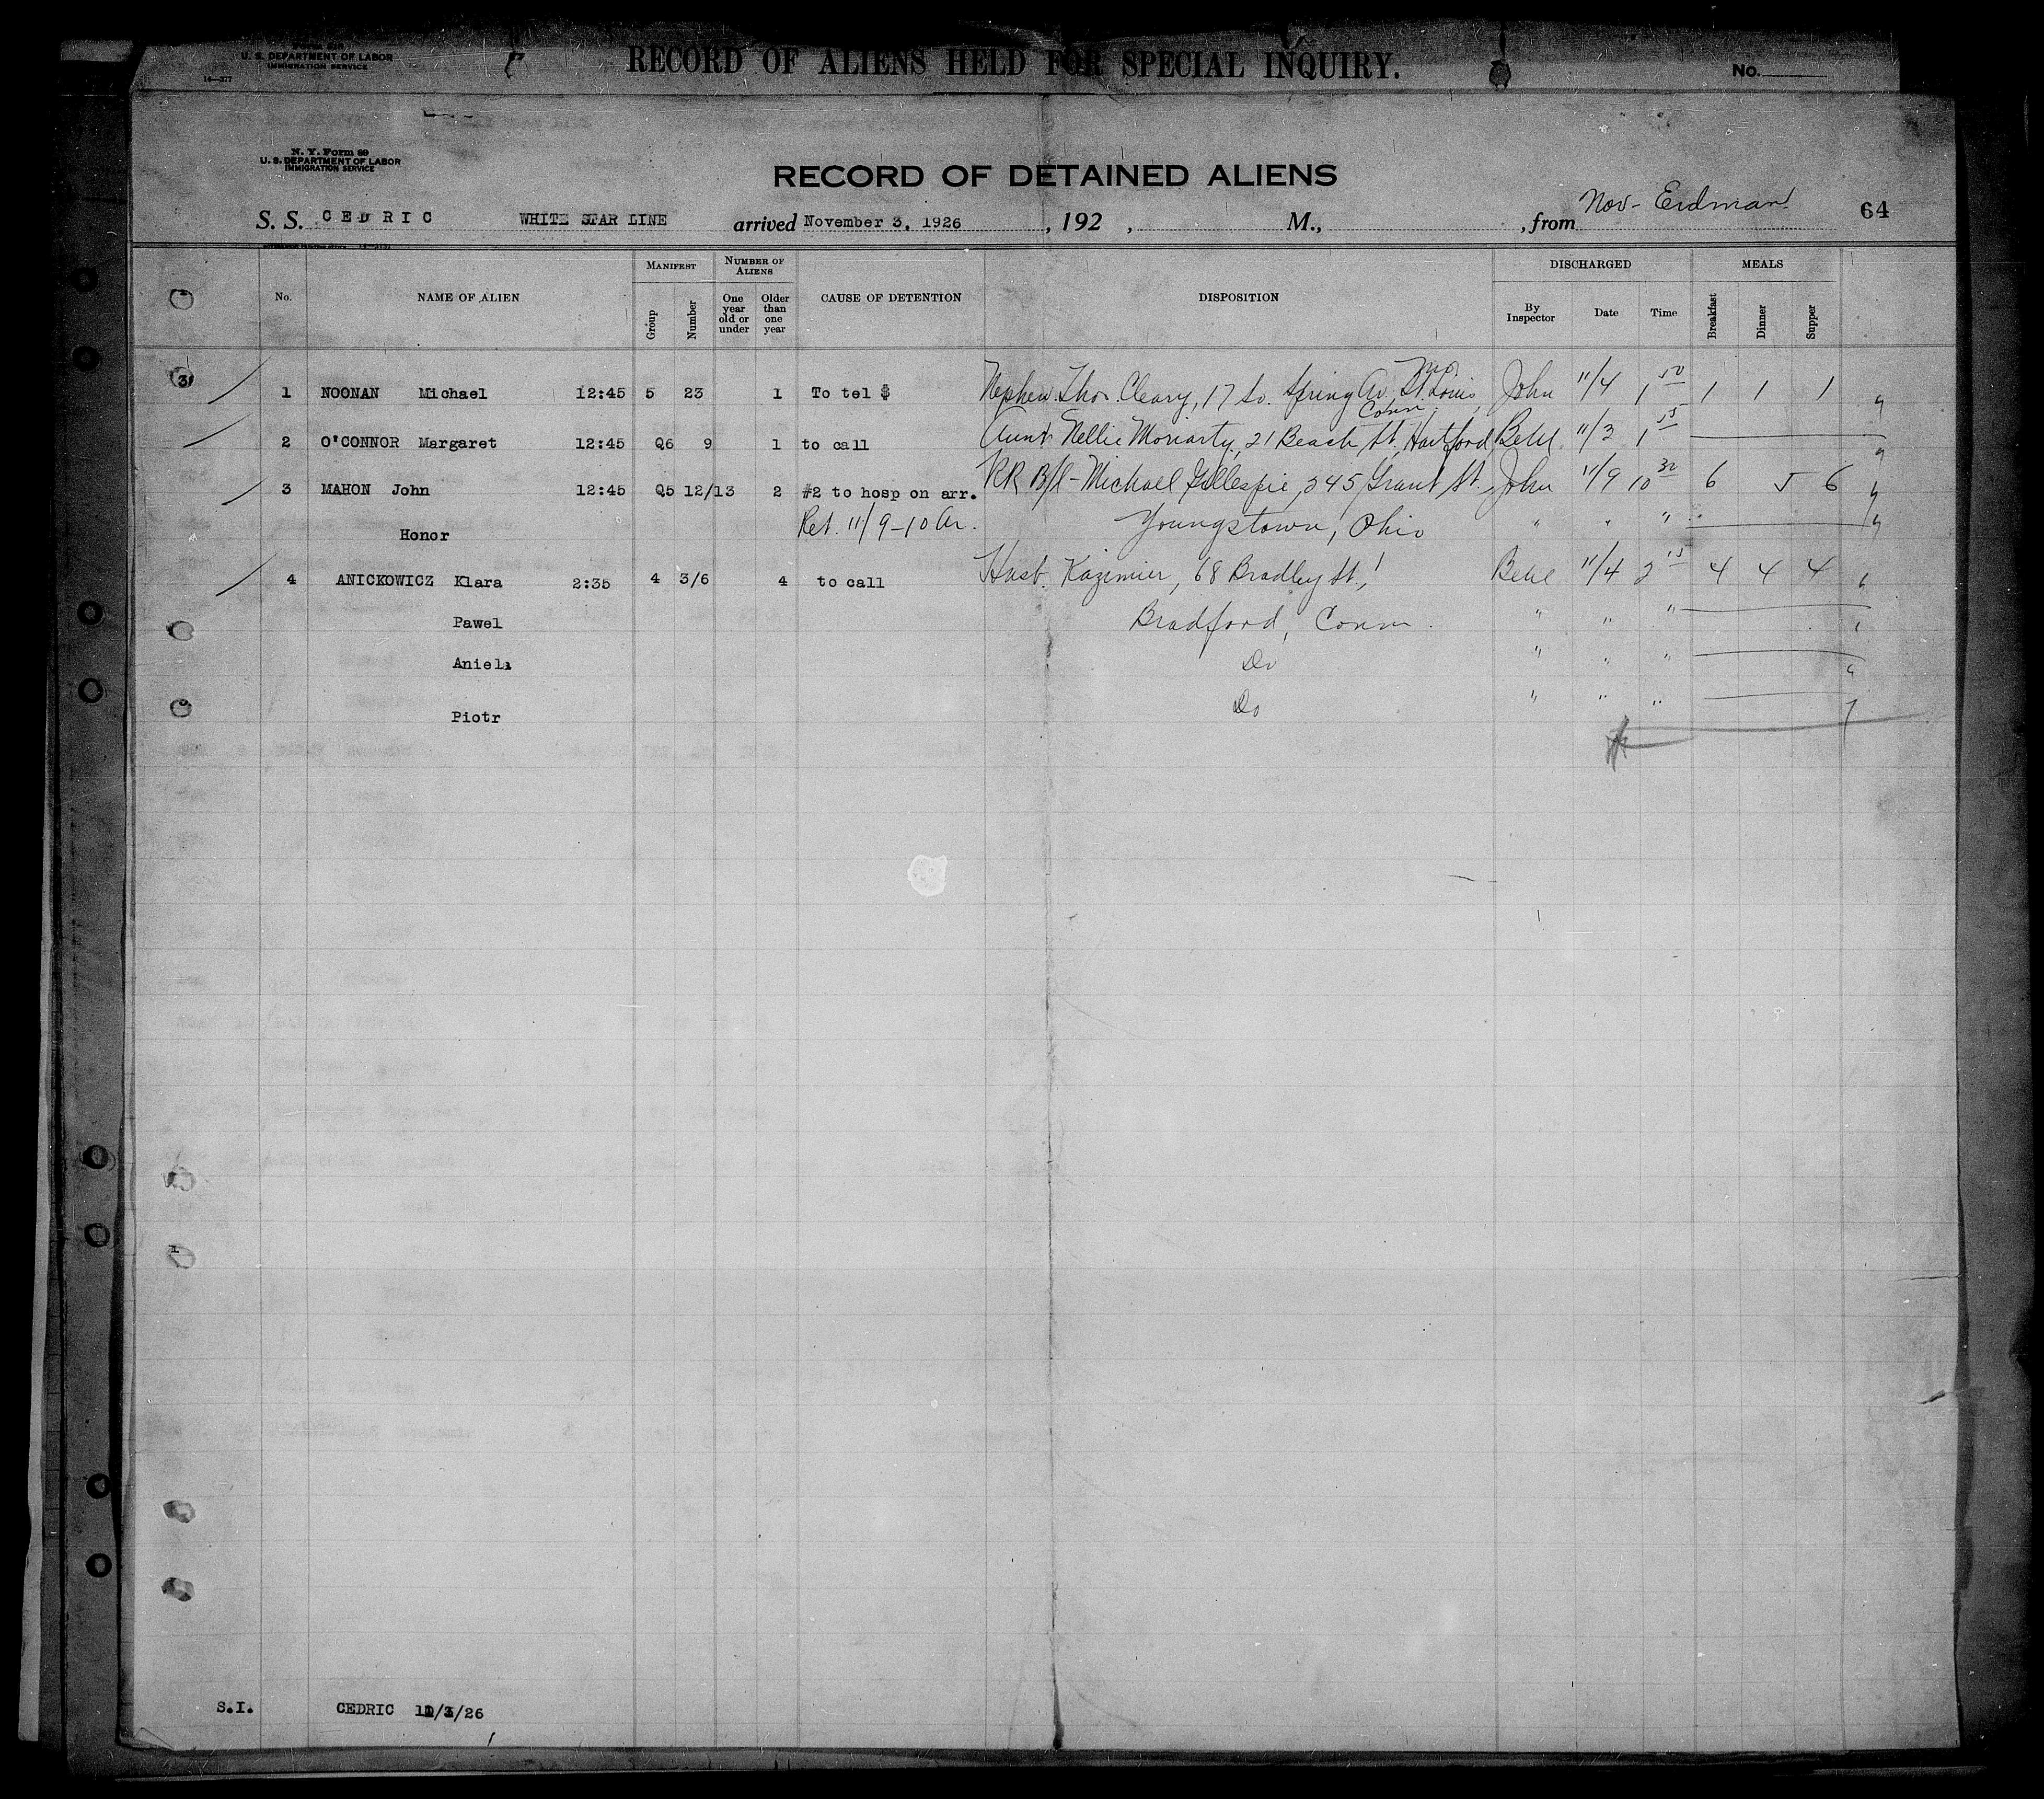 U. S. DEPARTMENT OF LABOR
IMMIGRATION SERVICE
14—377
RECORD OF ALIENS HELD FOR SPECIAL INQUIRY.
No.
N. Y. Form 69
U. S. DEPARTMENT OF LABOR
IMMIGRATION SERVICE
RECORD OF DETAINED ALIENS
S. S. CEDRIC WHITE STAR LINE arrived November 3, 1926, 192 , M., , from Nov- Erdman 64
No. NAME OF ALIEN MANIFEST Group Number NUMBER OF ALIENS One year old or under Older than one year CAUSE OF DETENTION DISPOSITION DISCHARGED By Inspector Date Time MEALS Breakfast Dinner Supper
31
1 NOONAN Michael 12:45 5 23 1 To tel $ Nephew Thos. Cleary, 17 So. Spring Av. St. Louis, Mo. John 11/4 1 50 1 1 1
2 O'CONNOR Margaret 12:45 Q6 9 1 to call Aunt Nellie Moriarty, 21 Beach St., Hartford Conn. 11/3 1 15
3 MAHON John 12:45 Q5 12/13 2 #2 to hosp on arr. RR B/l - Michael Gillespie, 345 Grant St., John 11/9 10 30 6 5 6
Honor Ret. 11/9-10 Ar. Youngstown, Ohio " " "
4 ANICKOWICZ Klara 2:35 4 3/6 4 to call Husb. Kazimier, 68 Bradley St., 11/4 2 15 4 4 4
Pawel Bradford, Conn. " " "
Aniela Do " " "
Piotr Do " " "
S.I. CEDRIC /26